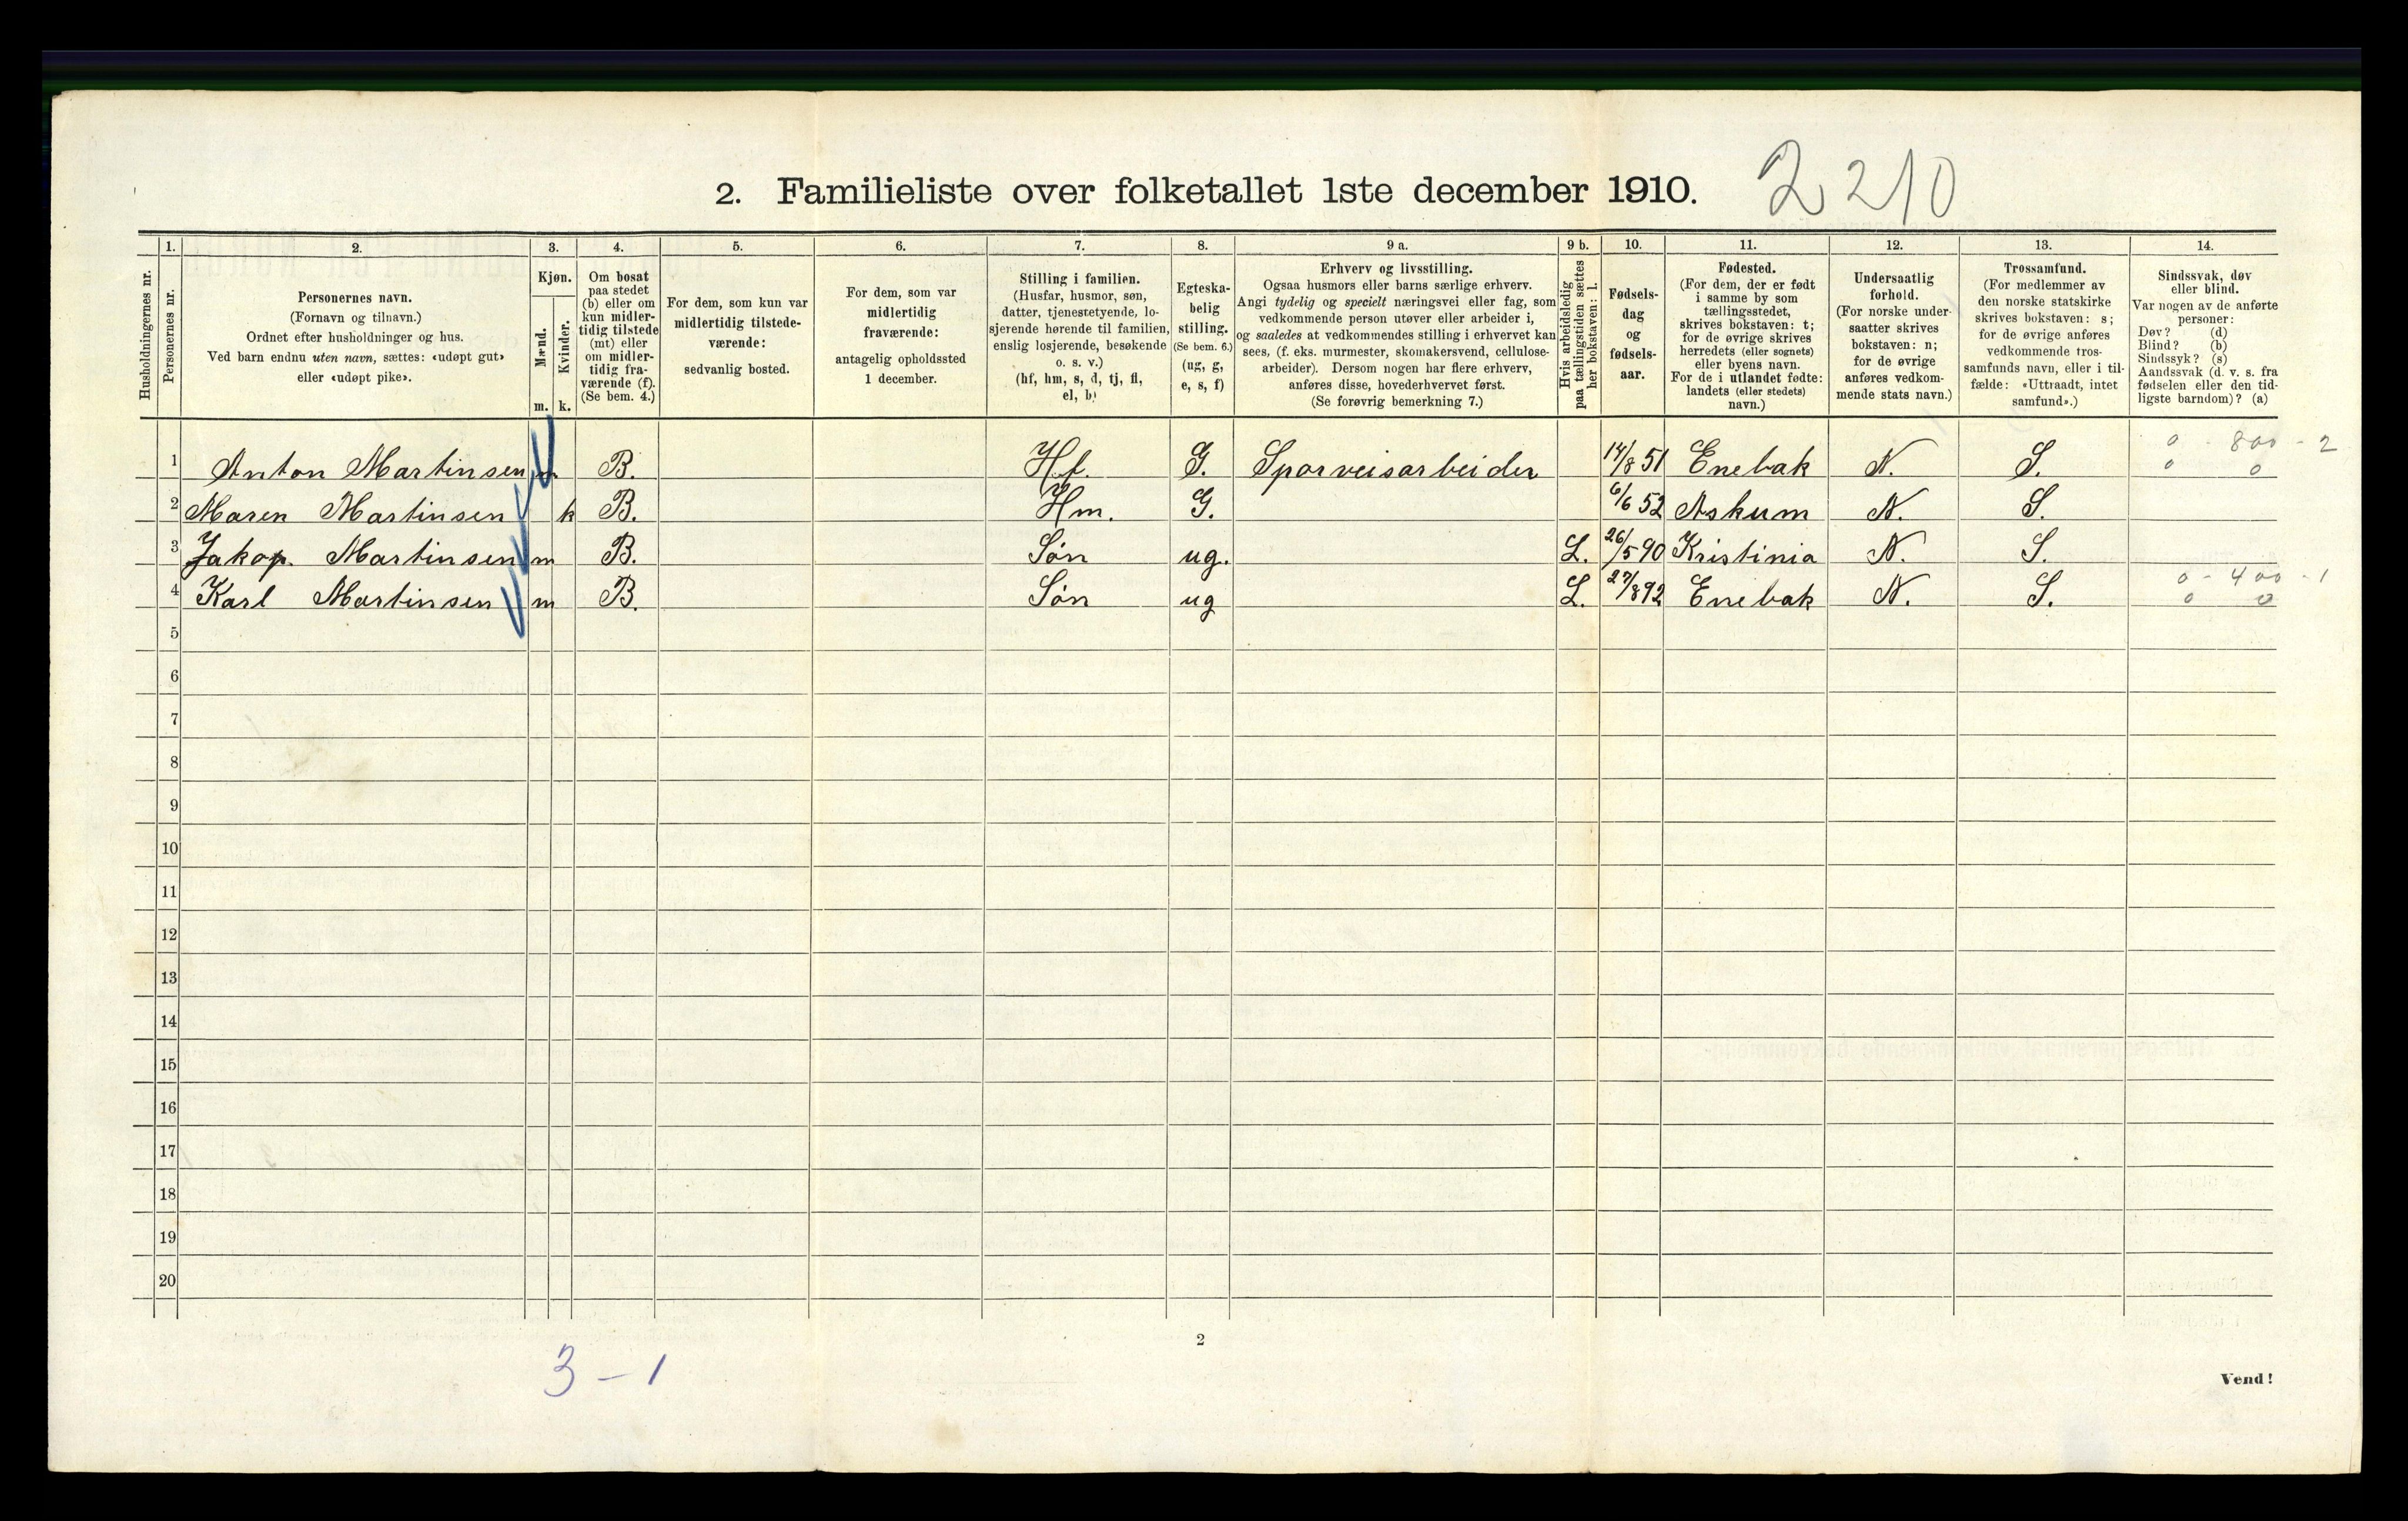 2. Familieliste over folketallet 1ste december 1910. 2210
Husholdningernes nr.
1.
Personernes nr.
2.
Personernes navn.
(Fornavn og tilnavn.)
Ordnet efter husholdninger og hus.
Ved barn endnu uten navn, sættes: «udøpt gut»
eller «udøpt pike».
3.
Kjøn.
Mænd.
m.
Kvinder.
k.
4.
Om bosat
paa stedet
(b) eller om
kun midler-
tidig tilstede
(mt) eller
om midler-
tidig fra-
værende (f).
(Se bem. 4.)
5.
For dem, som kun var
midlertidig tilstede-
værende:
sedvanlig bosted.
6.
For dem, som var
midlertidig
fraværende:
antagelig opholdssted
1 december.
7.
Stilling i familien.
(Husfar, husmor, søn,
datter, tjenestetyende, lo-
sjerende hørende til familien,
enslig losjerende, besøkende
o. s. v.)
(hf, hm, s, d, tj, fl,
el, b)
8.
Egteska-
belig
stilling.
(Se bem. 6.)
(ug, g,
e, s, f)
9 a.
Erhverv og livsstilling.
Ogsaa husmors eller barns særlige erhverv.
Angi tydelig og specielt næringsvei eller fag, som
vedkommende person utøver eller arbeider i,
og saaledes at vedkommendes stilling i erhvervet kan
sees, (f. eks. murmester, skomakersvend, cellulose-
arbeider). Dersom nogen har flere erhverv,
anføres disse, hovederhvervet først.
(Se forøvrig bemerkning 7.)
9 b.
Hvis arbeidsledig
paa tællingstiden sættes
her bokstaven: l.
10.
Fødsels-
dag
og
fødsels-
aar.
11.
Fødested.
(For dem, der er født
i samme by som
tællingsstedet,
skrives bokstaven: t;
for de øvrige skrives
herredets (eller sognets)
eller byens navn.
For de i utlandet fødte:
landets (eller stedets)
navn.)
12.
Undersaatlig
forhold.
(For norske under-
saatter skrives
bokstaven: n;
for de øvrige
anføres vedkom-
mende stats navn.)
13.
Trossamfund.
(For medlemmer av
den norske statskirke
skrives bokstaven: s;
for de øvrige anføres
vedkommende tros-
samfunds navn, eller i til-
fælde: «Uttraadt, intet
samfund».)
14.
Sindssvak, døv
eller blind.
Var nogen av de anførte
personer:
Døv? (d)
Blind? (b)
Sindssyk? (s)
Aandssvak (d. v. s. fra
fødselen eller den tid-
ligste barndom)? (a)
1 Anton Martinsen m B. Hf. G. Sporveisarbeider 14/8 51 Enebak N. S. 0 - 800 - 2
0 0
2 Maren Martinsen k B. Hm. G. 6/6 52 Askum N. S.
3 Jakop. Martinsen m B. Søn ug. L. 26/5 90 Kristinia N. S.
4 Karl Martinsen m B. Søn ug L. 27/8 92 Enebak N. S. 0 - 400 - 1
0 0
5
6
7
8
9
10
11
12
13
14
15
16
17
18
19
20
2
3 - 1
Vend!